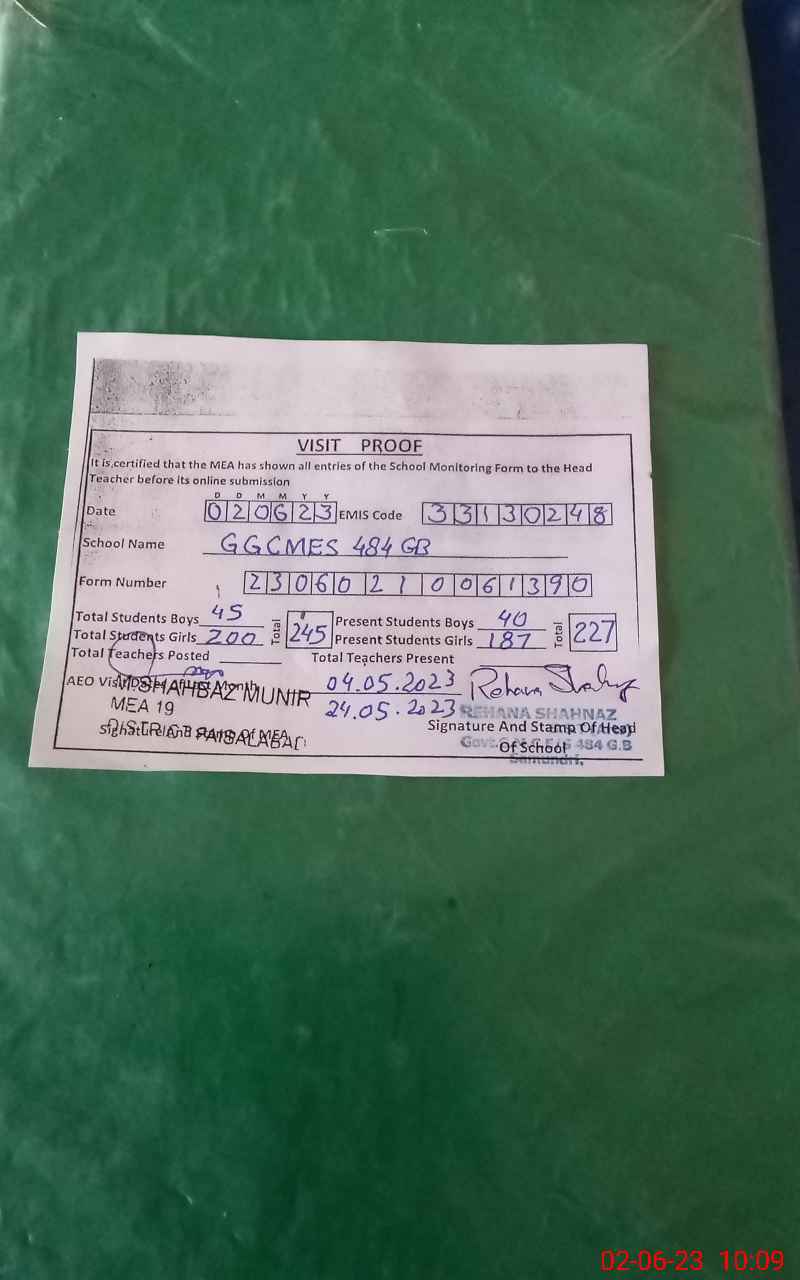 VISIT PROOF
It is certified that the MEA has shown all entries of the School Monitoring Form to the Head
Teacher before its online submission
D D M M Y Y
Date 020623 EMIS Code 33130248
School Name GGCMES 484 GB
Form Number 23060210061390
Total Students Boys 45 Total 245 Present Students Boys 40 Total 227
Total Students Girls 200 Present Students Girls 187
Total Teachers Posted Total Teachers Present
AEO Visit Month 04.05.2023 Rehana Shahnaz
M SHAHBAZ MUNIR 24.05.2023
MEA 19 REHANA SHAHNAZ
DISTRICT FAISALABAD
Signature And Stamp Of MEA Signature And Stamp Of Head
Of School
Govt. 484 G.B
Samundri.
02-06-23 10:09